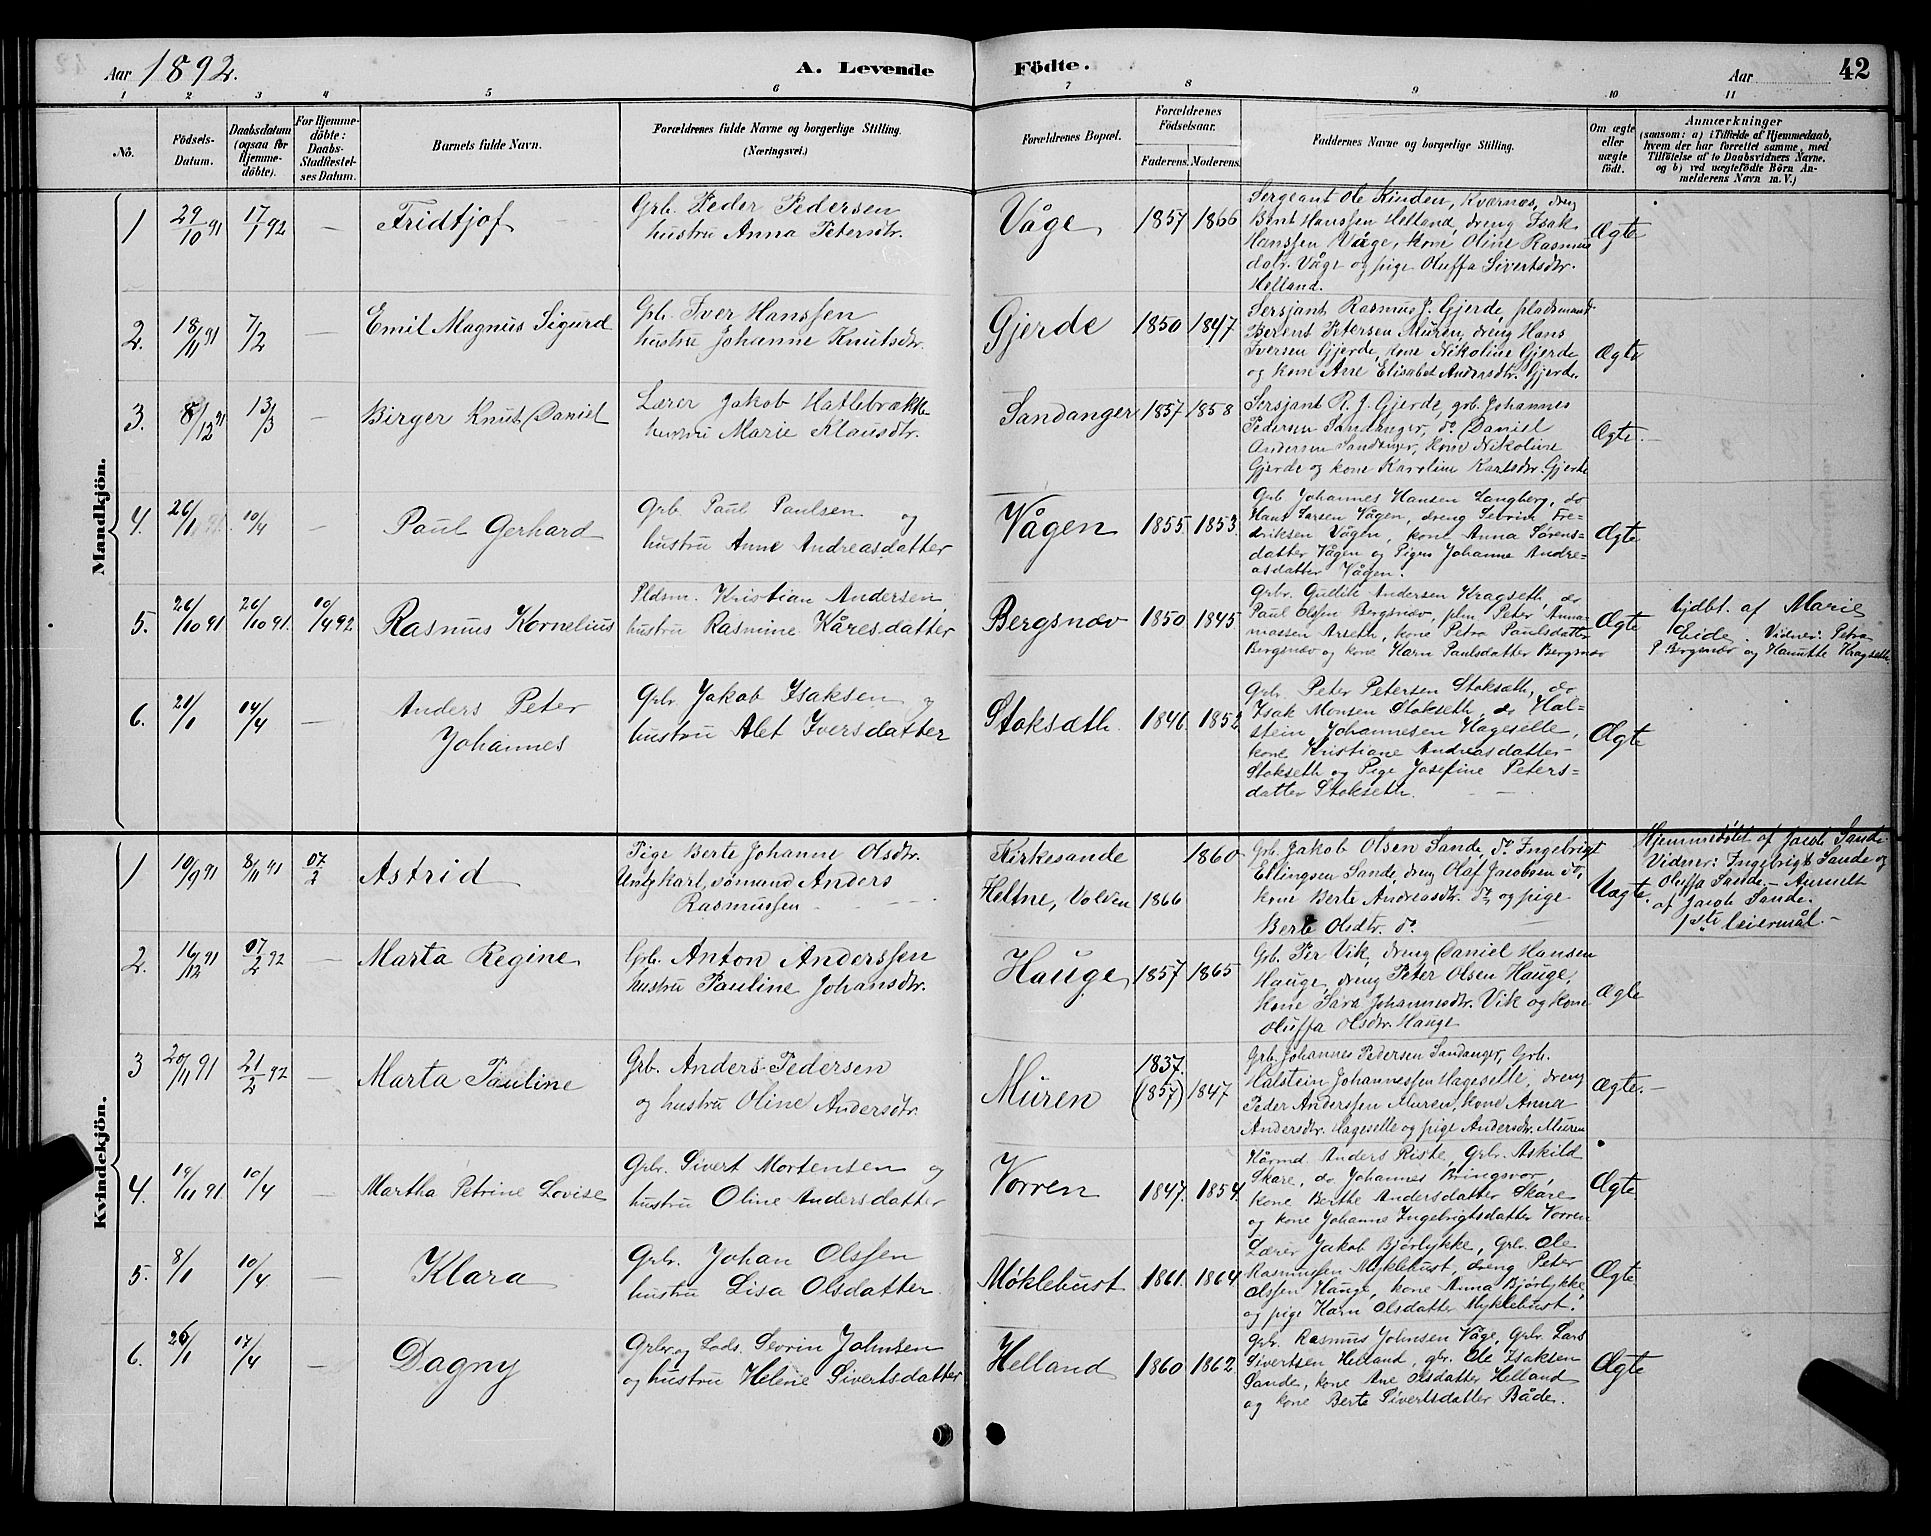 Aar 1892.
A. Levende Födte.
Aar
42
1 2 3 4 5 6 7 8 9 10 11
No.
Födsels-Datum.
Daabsdatum (ogsaa for Hjemme-döbte).
For Hjemme-döbte: Daabs-Stadfæstel-ses Datum.
Barnets fulde Navn.
Forældrenes fulde Navne og borgerlige Stilling. (Næringsvei.)
Forældrenes Bopæl.
Forældrenes Födselsaar.
Faderens. Moderens.
Faddernes Navne og borgerlige Stilling.
Om ægte eller uægte födt.
Anmærkninger (saasom: a) i Tilfælde af Hjemmedaab, hvem der har forrettet samme, med Tilföielse af to Daabsvidners Navne, og b) ved uægtefödte Börn Anmelderens Navn m. V.)
Mandkjön.
1 29/10 91 17/1 92 — Fridtjof
Grb. Peder Pedersen
hustru Anna Petersdtr.
Våge 1857 1866
Sergeant Ole Kinden, Kvernæs, dreng
Bent Hanssen Helland, dreng Isak
Hanssen Våge, kone Oline Rasmus
datr. Våge og pige Oluffa Sivertsdtr.
Helland.
Ægte
2. 18/11 91 7/2 — Emil Magnus Sigurd
Grb. Iver Hanssen
hustru Johanne Knutsdtr.
Gjerde 1850 1847
Sersjant Rasmus J. Gjerde, pladsmand
Berent Petersen Muren, dreng Hans
Iversen Gjerde, kone Nikoline Gjerde
og kone Ane Elisabet Andersdtr. Gjerde.
Ægte
3. 8/12 91 13/3 — Birger Knut Daniel
Lærer Jakob Hatlebrække
hustru Marie Klausdtr.
Sandanger 1857 1858
Sersjant R. J. Gjerde, grb. Johannes
Pedersen Sandanger, do Daniel
Andersen Sandanger, kone Nikoline
Gjerde og kone Karoline Karlsdtr. Gjerde
Ægte.
4. 26/1 10/4 — Paul Gerhard
Grb. Paul Paulsen og
hustru Anne Andreasdatter
Vågen 1855. 1853.
Grb Johannes Hansen Langberg, do
Hans Larsen Vågen, dreng Severin Fre-
driksen Vågen, kone Anna Sørens-
datter Vågen og Pigen Johanne Andre-
asdatter Vågen.
Ægte
5. 26/10 91 26/10 91. 10/4 92 Rasmus Kornelius
Pldsm. Kristian Andersen,
hustru Rasmine Kåresdatter
Bergsnæv 1850 1845
Grbr. Andersen Kragseth, do
Paul Olsen Bergsnæv, plm Peter
Arseth, kone Petra Paulsdatter
Bergsnæv og kone Karn Paulsdatter Bergsnæv
Ægte
hjdbt. af Marie
Eide. Vidner: Petra
P Bergsnæv og Kragseth
6. 21/1 14/4 — Anders Peter
Johannes
Grb Jakob Isaksen og
hustru Alet Iversdatter
Stoksæth. 1846 1852
Grb. Peter Petersen Stokseth, do
Isak Monsen Stokseth, do Hal-
stein Johannesen Hageselle,
kone Kristiane Andreasdatter
Stokseth og Pige Josefine Peters-
datter Stokseth.
Ægte
Kvindekjön.
1 10/9 91 8/11 91 07/2 Astrid
Pige Berte Johanne Olsdtr.
Ungkarl, sømand Anders
Rasmussen
Kirkesande 1860
Heltne, Volden 1866
Grb. Jakob Olsen Sande, do Ingebrigt
Ellingsen Sande, dreng Olaf Jacobsen do,
kone Berte Andreasdtr. do og pige
Berte Olsdtr. do.
Uægte.
Hjemmedøbt af Jacob Sande
Vidner: Ingebrigt Sande og
Oluffa Sande.— Anmeldt
af Jacob Sande.
1ste leiermål.—
2. 16/12 91 07/2 92 — Marta Regine
Grb. Anton Anderssen
hustru Pauline Johansdtr.
Hauge 1857 1865
Grb. Per Vik, dreng Daniel Hansen
Hauge, dreng Peter Olsen Hauge,
kone Sara Johannesdtr. Vik og kone
Oluffa Olsdtr. Hauge
Ægte
3 20/11 91 21/2 92 — Marta Pauline
Grb. Anders Pedersen
og hustru Oline Andersdtr.
Muren 1837. (1857) 1847
Grb. Johannes Pedersen Sandanger, Grb.
Halstein Johannessen Hageselle, dreng
Peder Anderssen Muren, kone Anna
Andersdtr. Hageselle og pige Andersdtr. Muren
Ægte.—
4. 19/11 91 10/4 — Martha Petrine Lovise
Grbr. Sivert Mortensen og
hustru Oline Andersdatter
Vorren 1847. 1854.
Kårmd. Anders Riste, Grb. Askild
Skare, do Johannes Bringsvor,
kone Berthe Andersdatter Skare
og kone Johanne Ingebrigtsdatter Vorren
Ægte
5. 8/1 10/4 — Klara
Grb. Johan Olssen
hustru Lisa Olsdatter.
Møklebust 1861. 1864
Lærer Jakob Bjørlykke, Grb. Ole
Rasmussen Myklebust, dreng Peter
Olssen Hauge, kone Anna Bjørlykke,
og pige Karn Olsdatter Myklebust.
Ægte
6. 26/1 17/4 — Dagny
Grbr. og Lods. Sevrin Johnsen
og hustru Helene Sivertsdatter
Helland 1860 1862.
Grb. Rasmus Johnsen Våge, Grb. Lars
Sivertsen Helland, gbr. Ole Isaksen
Sande, kone Ane Olsdatter Helland
og kone Berte Sivertsdatter Både.
Ægte